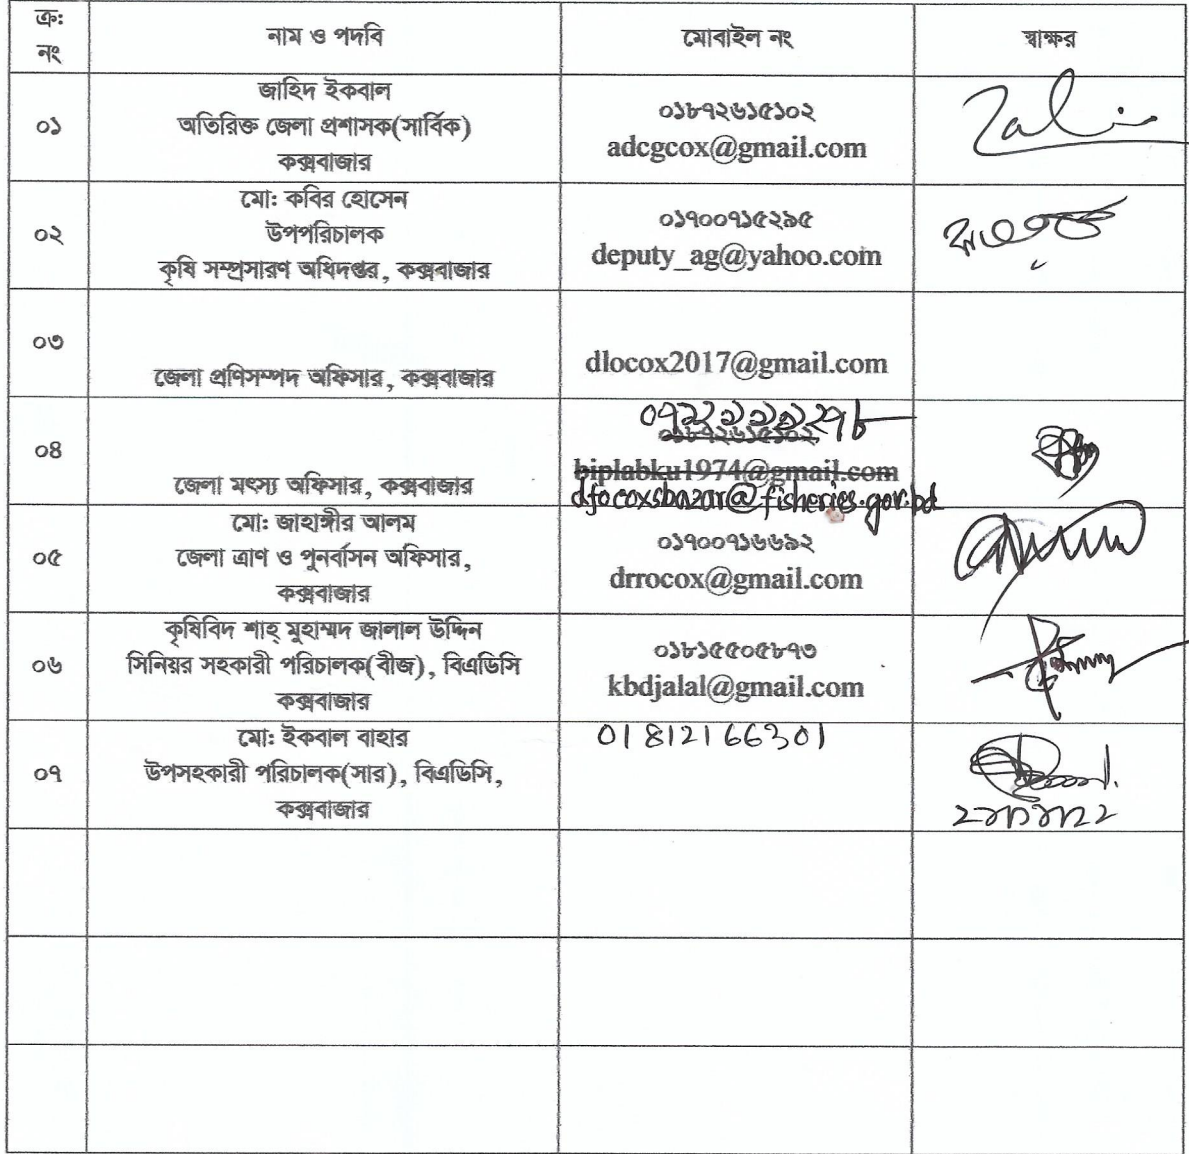 ক্র: নং
নাম ও পদবি
মোবাইল নং
স্বাক্ষর
০১
জাহিদ ইকবাল
অতিরিক্ত জেলা প্রশাসক(সার্বিক)
কক্সবাজার
০১৮৭২৬১৫১০২
adcgcox@gmail.com
০২
মো: কবির হোসেন
উপপরিচালক
কৃষি সম্প্রসারণ অধিদপ্তর, কক্সবাজার
০১৭০০৭১৫২৯৫
deputy_ag@yahoo.com
০৩
জেলা প্রণিসম্পদ অফিসার, কক্সবাজার
dlocox2017@gmail.com
০৪
জেলা মৎস্য অফিসার, কক্সবাজার
০১৮৭২৬১৫১০২
biplabku1974@gmail.com
dfocoxsbazar@fisheries.gov.bd
০৫
মো: জাহাঙ্গীর আলম
জেলা ত্রাণ ও পুনর্বাসন অফিসার,
কক্সবাজার
০১৭০০৭১৬৬৯২
drrocox@gmail.com
০৬
কৃষিবিদ শাহ্ মুহাম্মদ জালাল উদ্দিন
সিনিয়র সহকারী পরিচালক(বীজ), বিএডিসি
কক্সবাজার
০১৮১৫৫০৫৮৭৩
kbdjalal@gmail.com
০৭
মো: ইকবাল বাহার
উপসহকারী পরিচালক(সার), বিএডিসি,
কক্সবাজার
01812166301